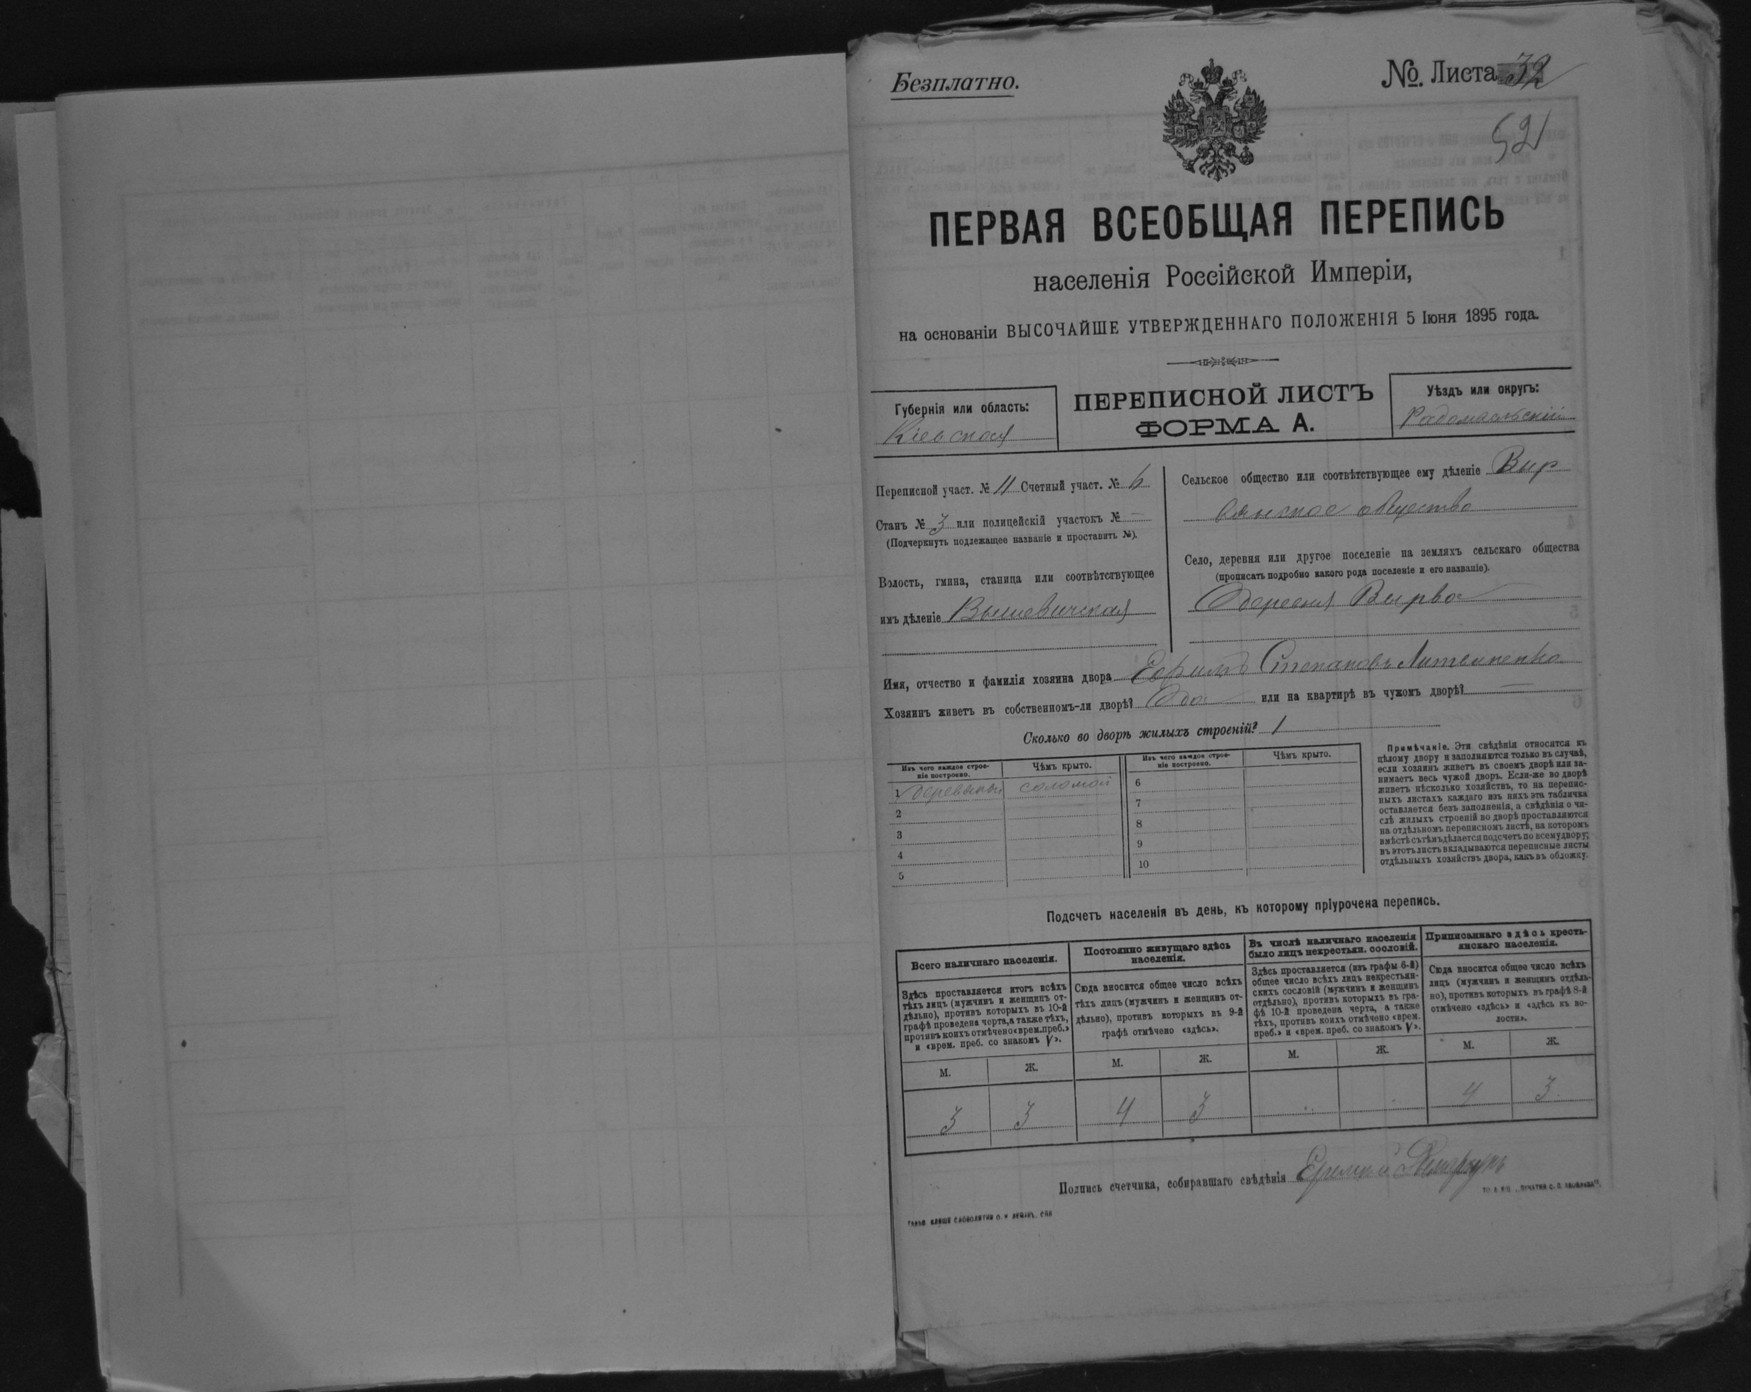 Безплатно.
№. Листа 32
521
ПЕРВАЯ ВСЕОБЩАЯ ПЕРЕПИСЬ
населенія Россійской Имперіи,
на основаніи ВЫСОЧАЙШЕ УТВЕРЖДЕННАГО ПОЛОЖЕНІЯ 5 Іюня 1895 года.
Губернія или область:
Кіевская
ПЕРЕПИСНОЙ ЛИСТЪ
ФОРМА А.
Уѣздъ или округъ:
Радомысльскій
Переписной участ. № 11 Счетный участ. № 6
Станъ № 3 или полицейскій участокъ № —
(Подчеркнуть подлежащее названіе и проставить №).
Волость, гмина, станица или соотвѣтствующее
имъ дѣленіе Вышевичская
Сельское общество или соотвѣтствующее ему дѣленіе Выр
вянское общество
Село, деревня или другое поселеніе на земляхъ сельскаго общества
(прописать подробно какого рода поселеніе и его названіе).
Деревня Вырва
Имя, отчество и фамилія хозяина двора Степановъ Литвиненко
Хозяинъ живетъ въ собственномъ-ли дворѣ? Да или на квартирѣ въ чужомъ дворѣ? —
Сколько во дворѣ жилыхъ строеній? 1
Изъ чего каждое строе-
ніе построено.
Чѣмъ крыто.
1 деревяный соломой
2
3
4
5
Изъ чего каждое строе-
ніе построено.
Чѣмъ крыто.
6
7
8
9
10
Примѣчаніе. Эти свѣдѣнія относятся къ
цѣлому двору и заполняются только въ случаѣ,
если хозяинъ живетъ въ своемъ дворѣ или за-
нимаетъ весь чужой дворъ. Если-же во дворѣ
живетъ нѣсколько хозяйствъ, то на перепис-
ныхъ листахъ каждаго изъ нихъ эта табличка
оставляется безъ заполненія, а свѣдѣнія о чи-
слѣ жилыхъ строеній во дворѣ проставляются
на отдѣльномъ переписномъ листѣ, на которомъ
вмѣстѣ съ тѣмъ дѣлается подсчетъ по всему двору;
въ этотъ листъ вкладываются переписные листы
отдѣльныхъ хозяйствъ двора, какъ въ обложку.
Подсчетъ населенія въ день, къ которому пріурочена перепись.
Всего наличнаго населенія.
Здѣсь проставляется итогъ всѣхъ
тѣхъ лицъ (мужчинъ и женщинъ от-
дѣльно), противъ которыхъ въ 10-й
графѣ проведена черта, а также тѣхъ,
противъ коихъ отмѣчено «врем. преб.»
и «врем. преб. со знакомъ V».
М. Ж.
3 3
Постоянно живущаго здѣсь
населенія.
Сюда вносится общее число всѣхъ
тѣхъ лицъ (мужчинъ и женщинъ от-
дѣльно), противъ которыхъ въ 9-й
графѣ отмѣчено «здѣсь».
М. Ж.
4 3
Въ числѣ наличнаго населенія
было лицъ некрестьян. сословій.
Здѣсь проставляется (изъ графы 6-й)
общее число всѣхъ лицъ некрестьян-
скихъ сословій (мужчинъ и женщинъ
отдѣльно), противъ которыхъ въ гра-
фѣ 10-й проведена черта, а также
тѣхъ, противъ коихъ отмѣчено «врем.
преб.» и «врем. преб. со знакомъ V».
М. Ж.
Приписаннаго здѣсь кресть-
янскаго населенія.
Сюда вносится общее число всѣхъ
лицъ (мужчинъ и женщинъ отдѣль-
но), противъ которыхъ въ графѣ 8-й
отмѣчено «здѣсь» и «здѣсь къ во-
лости».
М. Ж.
4 3
Подпись счетчика, собиравшаго свѣдѣнія